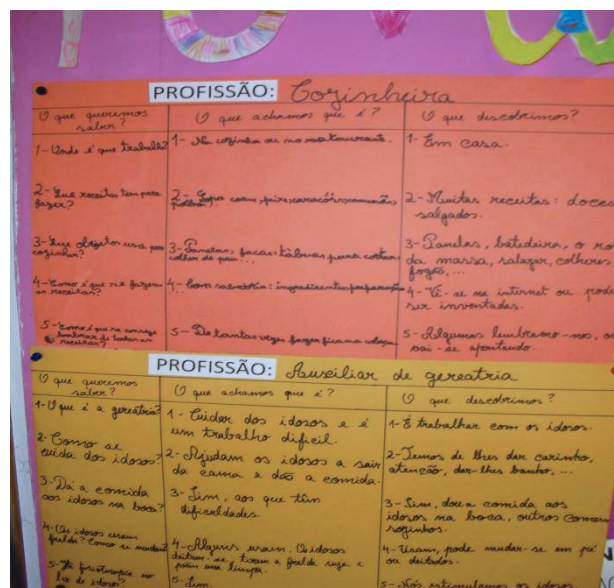 PROFISSÃO: Cozinheira
O que queremos
saber?
O que achamos que é?
O que descobrimos?
1- Onde é que trabalha?
1- Na cozinha ou no restaurante.
1- Em casa.
2- Que receitas tem para
fazer?
2- Sopa carne, peixe, caracóis,
2- Muitas receitas: doces
salgados.
3- Que objetos usa para
cozinhar?
3- Panelas, facas, tábuas para cortar,
colher de pau...
3- Panelas, batedeira, o ro
da massa, salazar, colheres
fogão, ...
4- Como é que se fazem
as receitas?
4- Com sabedoria: ingredientes, preparação
4- Vê-se na internet ou pode
ser inventadas.
5- Como é que se consegue
lembrar de todas as
receitas?
5- De tantas vezes fazer fica na cabeça
5- Algumas lembramo-nos, ou
vai-se apontando.
PROFISSÃO: Auxiliar de gereatria
O que queremos
saber?
O que achamos que é?
O que descobrimos?
1- O que é a gereatria?
1- Cuidar dos idosos e é
um trabalho difícil.
1- É trabalhar com os idosos.
2- Como se
cuida dos idosos?
2- Ajudam os idosos a sair
da cama e dão a comida.
2- Temos de lhes dar carinho,
atenção, dar-lhes banho, ...
3- Dá a comida
aos idosos na boca?
3- Sim, aos que têm
dificuldades.
3- Sim, dou a comida aos
idosos na boca, outros comem
sozinhos.
4- Os idosos usam
fralda? Como se mudam?
4- Alguns usam. Os idosos
deitam-se, tiram a fralda suja e
põem uma limpa.
4- Usam, pode mudar-se em pé
ou deitados.
5- Há fisioterapia no
lar de idosos?
5- Sim.
5- Nós estimulamos os idosos